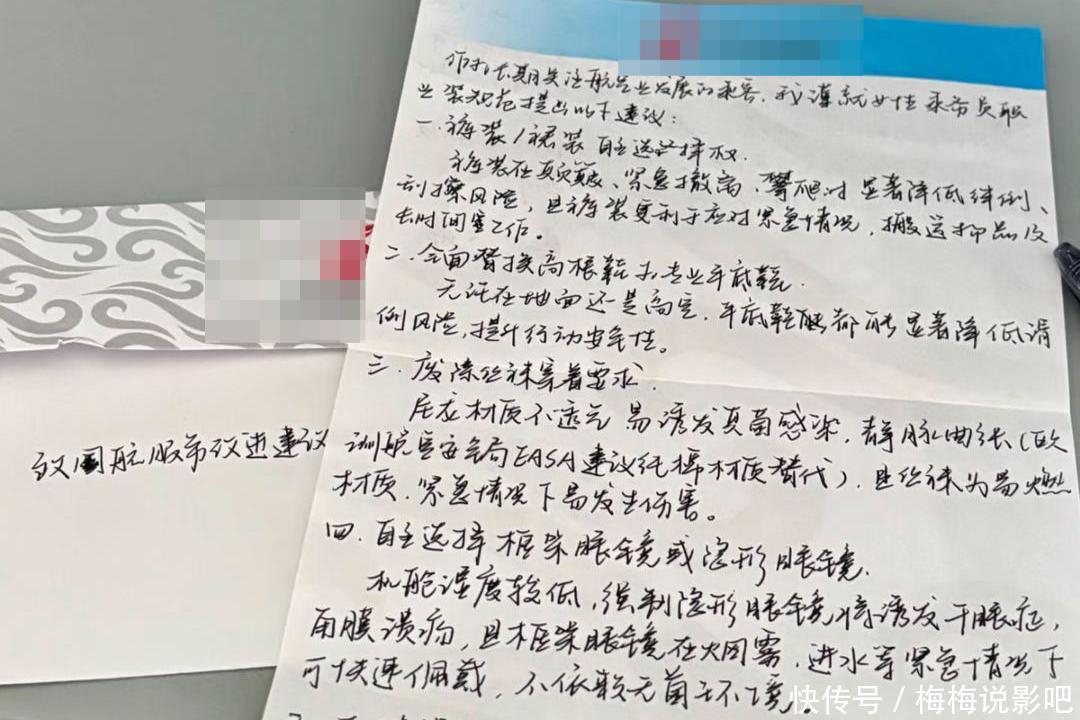 作为长期关注航空业发展的乘客，我谨就女性乘务员职
业装规范提出以下建议：
一．裤装/裙装自主选择权．
裤装在颠簸、紧急撤离、攀爬时显著降低绊倒、
刮擦风险，且裤装更利于应对紧急情况，搬运物品及
长时间工作。
二．全面替换高根鞋为专业平底鞋．
无论在地面还是高空，平底鞋都能显著降低滑
倒风险，提升行动安全性。
三．废除丝袜穿着要求．
尼龙材质不透气易诱发真菌感染，静脉曲张（欧
训航空安全局EASA建议纯棉材质替代），且丝袜为易燃
材质．紧急情况下易发生伤害。
四．自主选择框架眼镜或隐形眼镜．
机舱湿度较低，强制隐形眼镜将诱发干眼症，
角膜溃疡，且框架眼镜在火烟雾，进水等紧急情况下
可快速佩戴，不依赖无菌环境。
致国航服务改进建议
快传号 / 梅梅说影吧